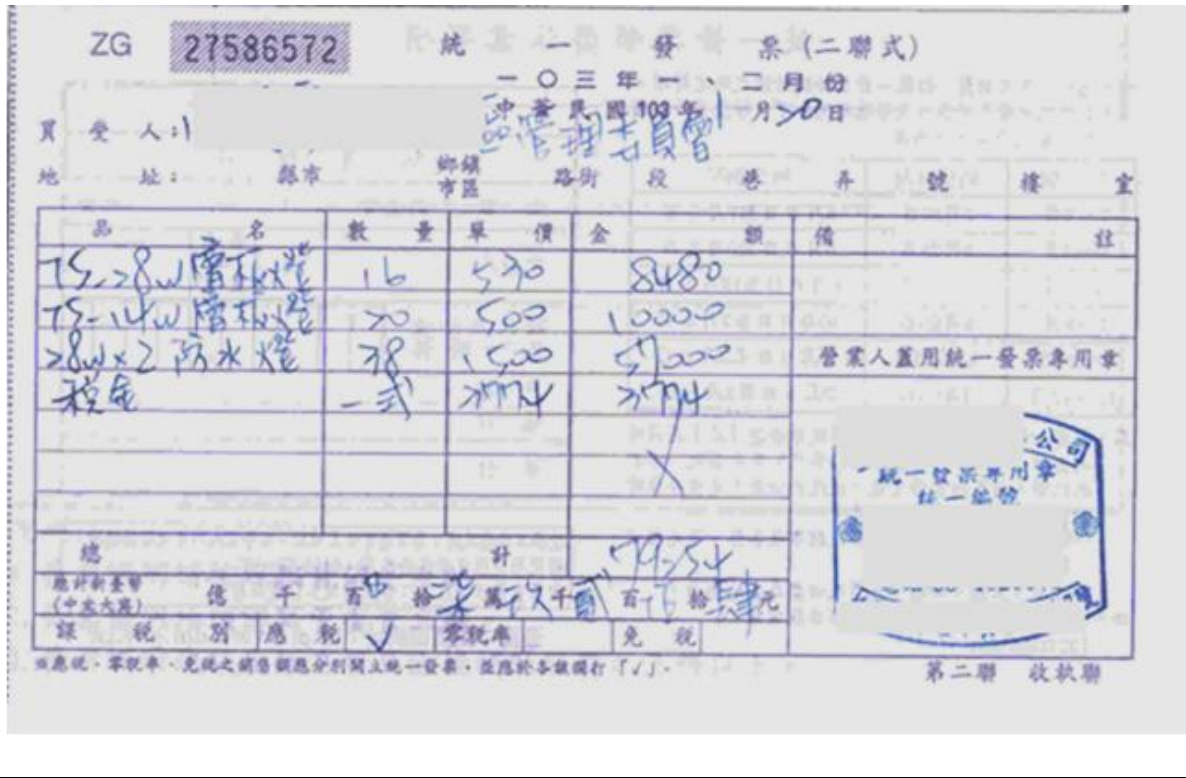 ZG 27586572 統一發票(二聯式)
一○三年一、二月份
中華民國103年1月20日
買受人:
管理委員會
地址: 縣市 鄉鎮市區 路街 段 巷 弄 號 樓 室
品名 數量 單價 金額 備註
T5-28W層板燈 16 530 8480
T5-14W層板燈 20 500 10000
28W×2防水燈 38 1500 57000
營業人蓋用統一發票專用章
稅金 一式 3774 3774
公司
統一發票專用章
統一編號
總計 79254
應計新臺幣(中文大寫) 億 千 百 拾柒萬玖千貳百伍拾肆元
課稅別 應稅 ✓ 零稅率 免稅
※應稅、零稅率、免稅之銷售額應分別開立統一發票,並應於各該欄打「✓」。
第二聯 收執聯